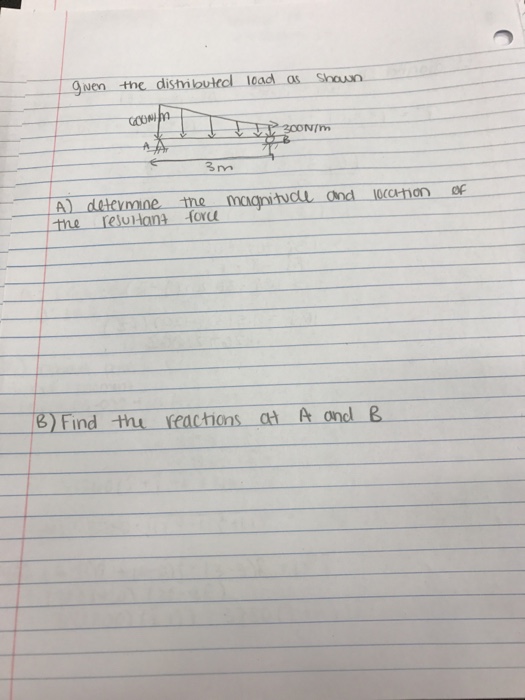 given the distributed load as shown
600N/m
300N/m
A
B
3m
A) determine the magnitude and location of
the resultant force
B) Find the reactions at A and B